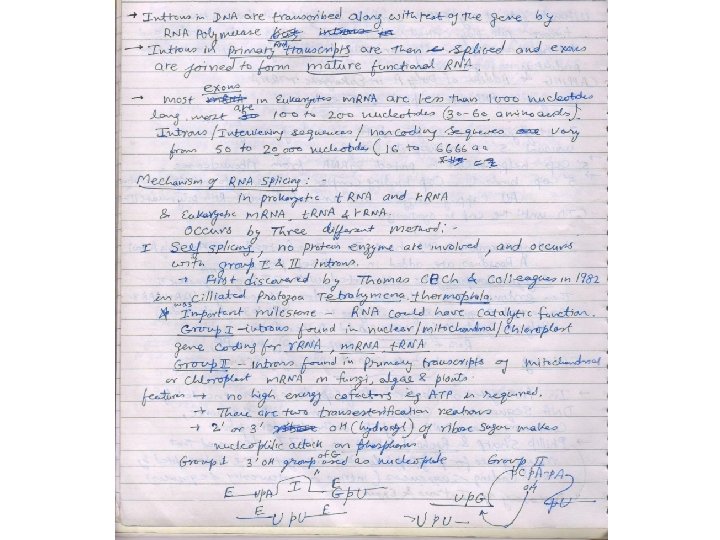 → Introns in DNA are transcribed along with rest of the gene by
RNA Polymerase
→ Introns in Primary RNA transcripts are then spliced and exons
are joined to form mature functional RNA.
→ most exons in Eukaryotes mRNA are less than 1000 nucleotides
long. most are 100 to 200 nucleotides (30-60 amino acids).
Introns / Intervening sequences / noncoding sequences vary
from 50 to 20,000 nucleotides (16 to 6666 aa
Mechanism of RNA Splicing:
In prokaryotic tRNA and rRNA
& Eukaryotic mRNA, tRNA & rRNA.
Occurs by Three different method:-
I Self splicing, no protein enzyme are involved, and occurs
with group I & II introns.
→ First discovered by Thomas CECh & Colleagues in 1982
in cilliated Protozoa Tetrahymena thermophola.
* Important milestone - RNA could have catalytic function.
Group I - introns found in nuclear/mitochondrial/chloroplast
gene coding for rRNA, mRNA, tRNA
Group II - Introns found in primary transcripts of mitochondreal
or Chloroplast mRNA in fungi, algae & plants.
features → no high energy cofactors eg ATP is required.
→ There are two transesterification reactions
→ 2' or 3' OH (hydroxyl) of ribose sugar makes
nucleophilic attack on phosphorus.
Group I 3'OH group of G used as nucleophile Group II
E UpA I E GpU
E UpU E
UpG
OH
pU
→UpU